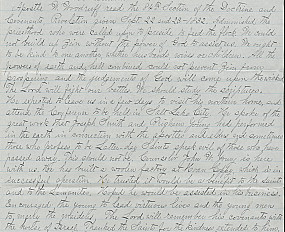 Apostle W. Woodruff read the 84th Section of the Doctrine and
Covenants, Revelation given Sept 22 and 23-1832. Admonished the
priesthood who were called upon to preside, to feed the flock. We could
not build up Zion without the power of God to assist us. We ought
to be kind to one another
powers of earth and hell combined could not prevent Zion from
prospering and the judgements of God will come upon the wicked
The Lord will fight our battles. We should study the scriptures.
He expected to leave us in a few days to visit his northern home, and
attend the Conference to be held in Salt Lake City. He spoke of the
great work that Joseph Smith and Brigham Young had performed
in the earth in connection with the apostles and elders and sometimes
those who profess to be Latter-day Saints speak evil of those who have
passed away. This should not be. Counselor John W. Young is here
with us. He has built a woolen factory at Moen Copy, which is in
successful operation. He trusted it would be a benefit to the Saints
and to the Lamanites. Hoped he would be assisted in his business.
Encouraged the young to lead virtuous lives and the young men
to marry the The Lord will remember his covenants with
the house of Israel. Thanked the Saints for the kindness extended to him,